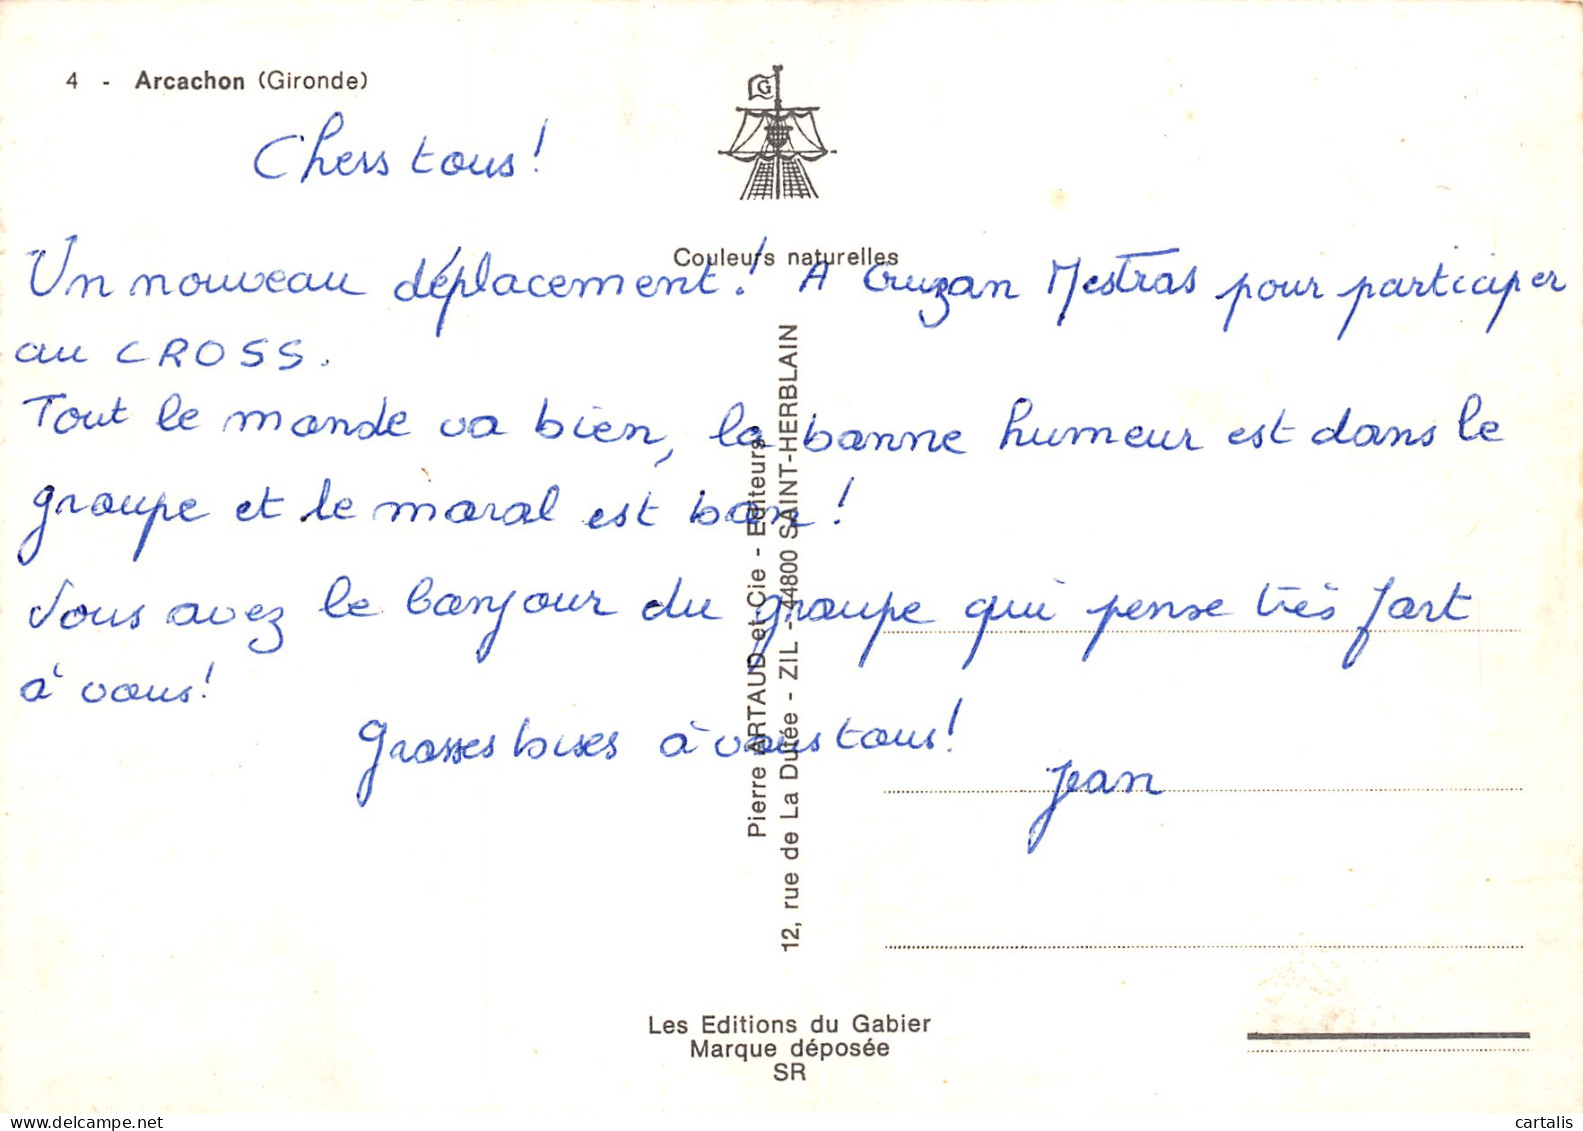 4 - Arcachon (Gironde)
G
Chers tous !
Couleurs naturelles
Un nouveau déplacement ! A Gruzan Mestras pour participer
au CROSS.
Tout le monde va bien, la bonne humeur est dans le
groupe et le moral est bon !
Vous avez le bonjour du groupe qui pense très fort
à vous !
Grosses bises à vous tous !
Jean
Pierre ARTAUD et Cie - Editeurs
12, rue de La Dutée - ZIL - 44800 SAINT-HERBLAIN
Les Editions du Gabier
Marque déposée
SR
delcampe.net
cartalis